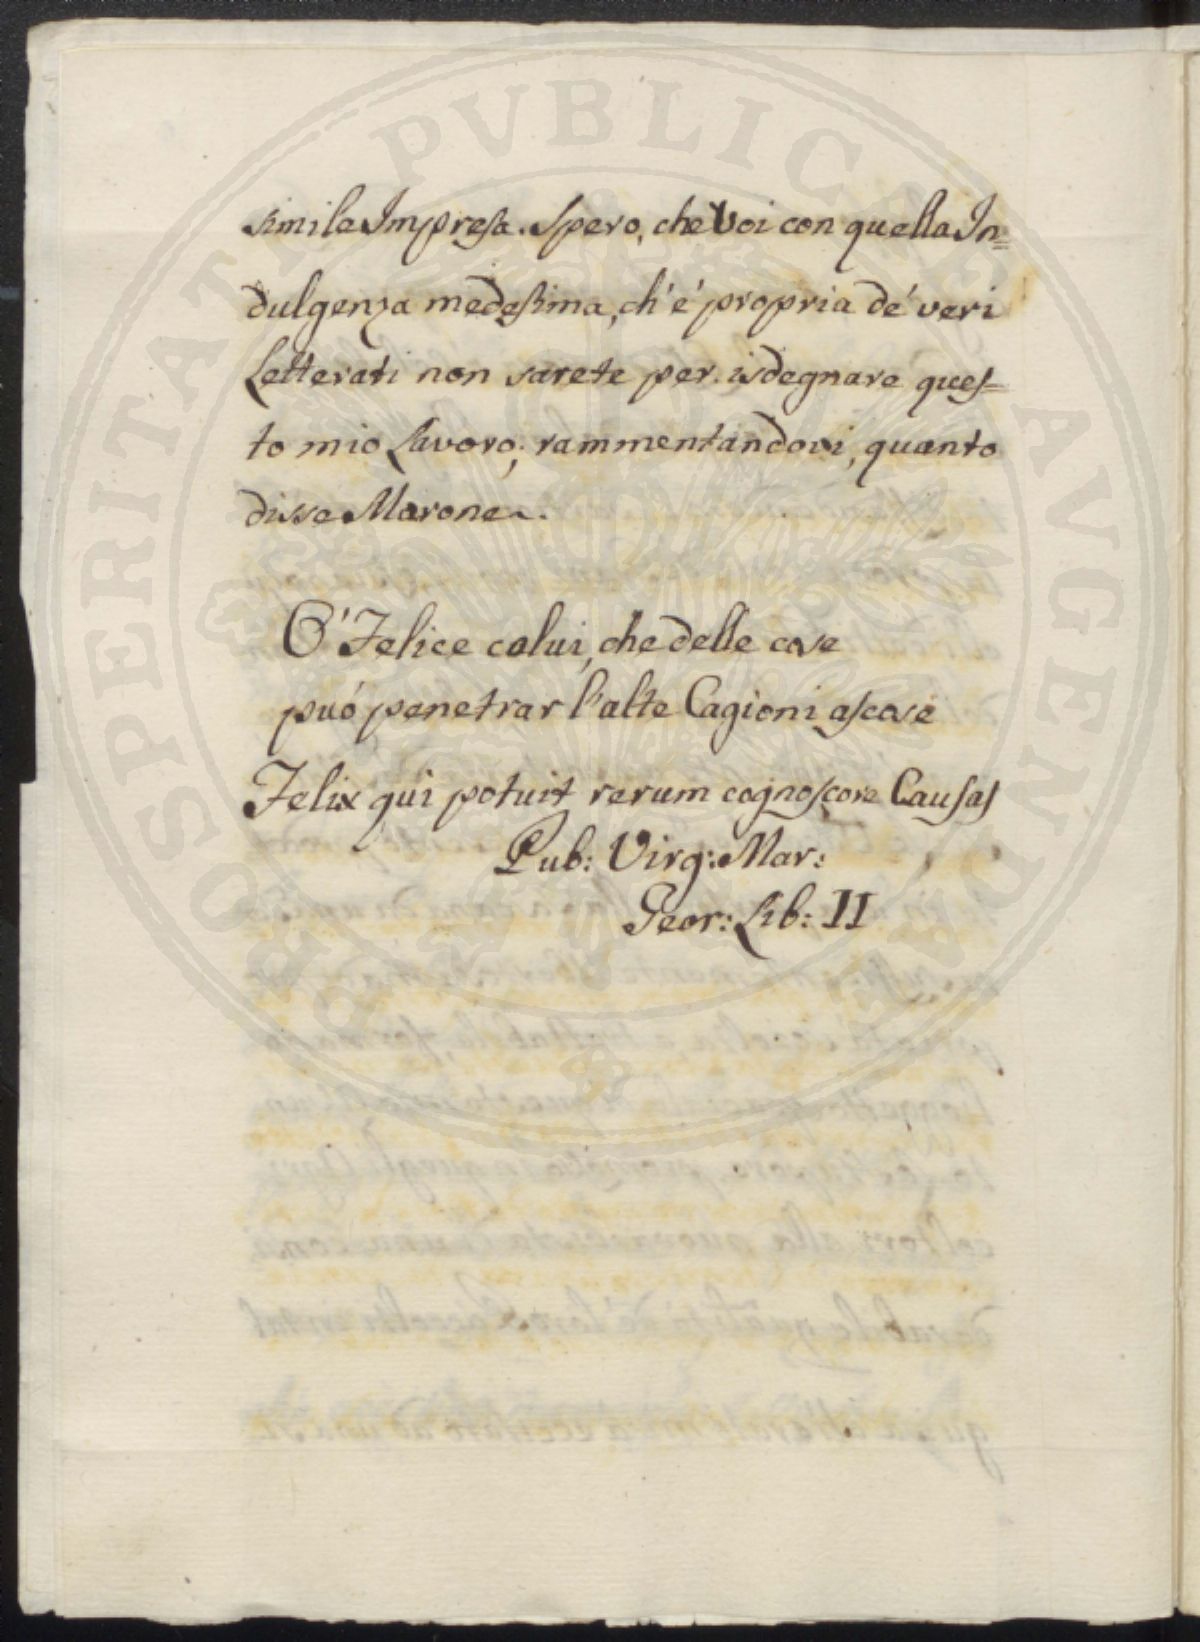 simile Impresa. Spero, che Voi con quella In=
dulgenza medesima, ch'é propria dé veri
Letterati non sarete per isdegnare ques=
to mio Lavoro; rammentandovi, quanto
disse Marone.
O' Felice colui, che delle cose
puó penetrar l'alte Cagioni ascose
Felix qui potuit rerum cognoscere Causas
Pub: Virg: Mar:
Geor: Lib: II
PROSPERITATI PVBLICAE AVGENDAE